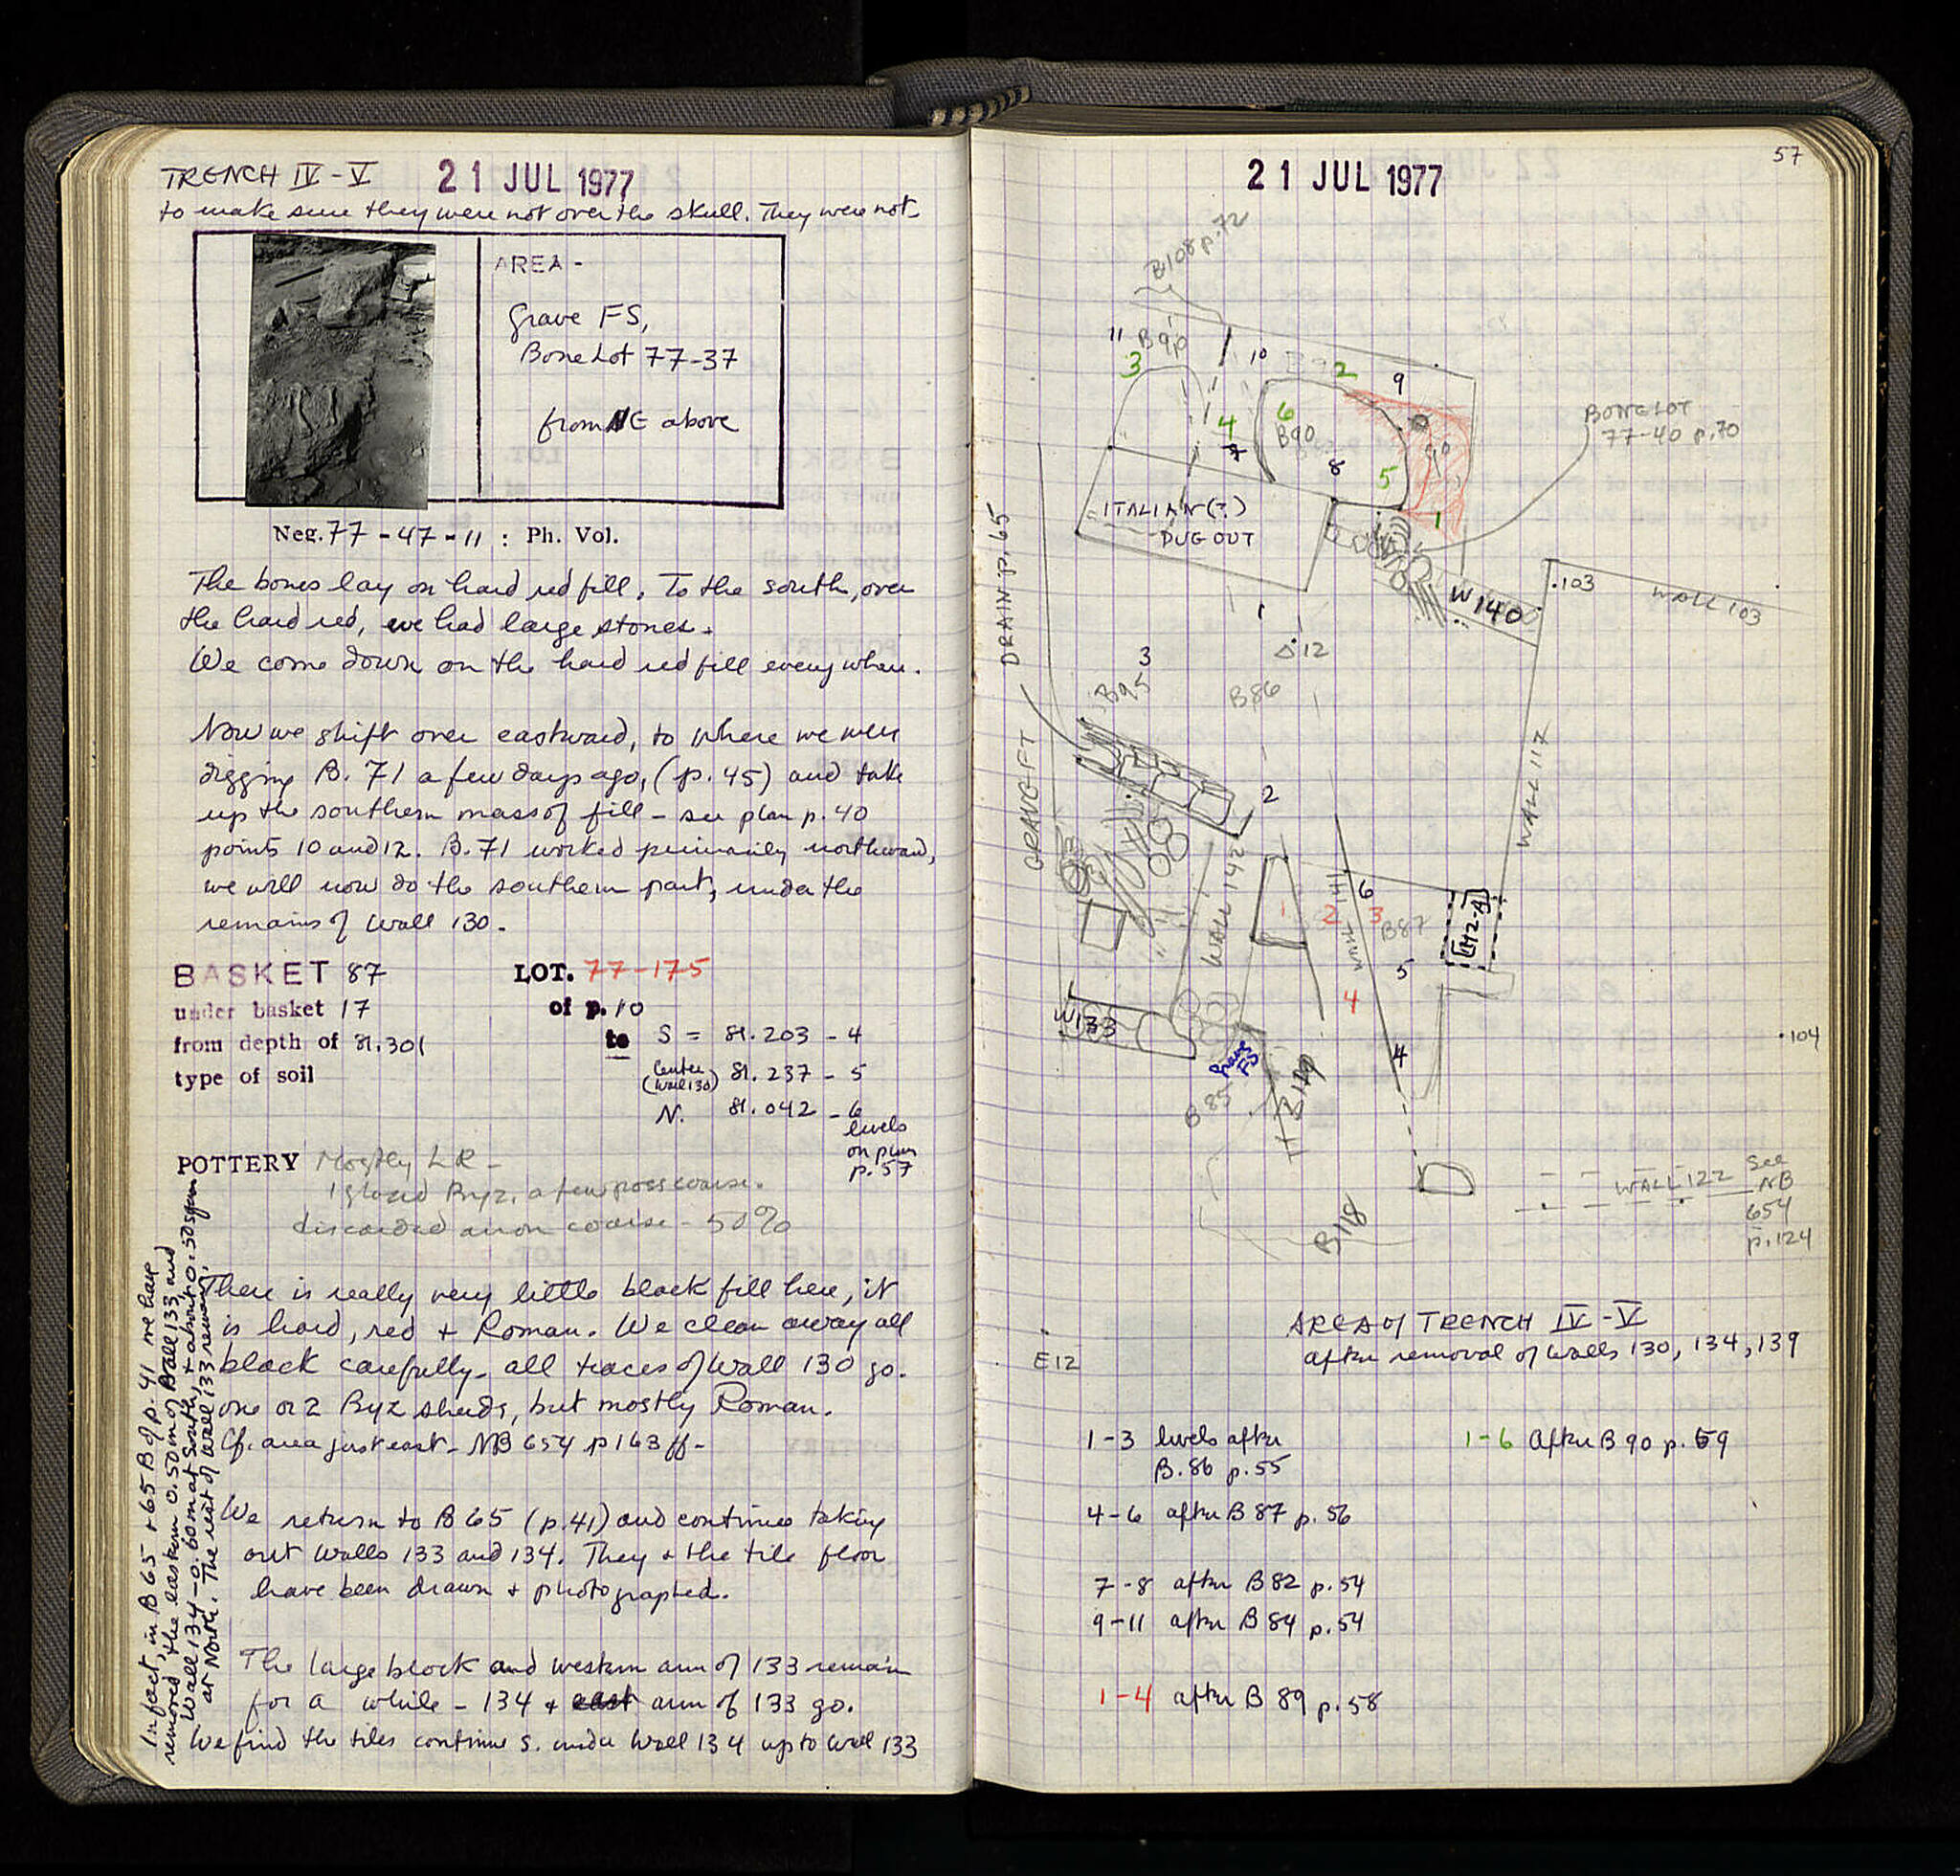 TRENCH IV - V 21 JUL 1977
to make sure they were not over the skull. They were not
AREA -
Grave FS,
Bone Lot 77-37
from NE above
Neg. 77 - 47 - 11 : Ph. Vol.
The bones lay on hard red fill. To the south, over
the hard red, we had large stones.
We come down on the hard red fill everywhere.
Now we shift over eastward, to where we were
digging B. 71 a few days ago, (p. 45) and take
up the southern mass of fill - see plan p. 40
points 10 and 12. B. 71 worked primarily northward,
we will now do the southern part, under the
remains of Wall 130.
BASKET 87 LOT. 77-175
under basket 17 of p. 10
from depth of 81.301 to S = 81.203 - 4
type of soil Center (Wall 130) 81.237 - 5
N. 81.042 - 6
levels
on plan
p. 57
POTTERY Mostly LR -
1 glazed Byz, a few poss coarse.
discarded anon coarse - 50%
There is really very little black fill here, it
is hard, red + Roman. We clean away all
black carefully - all traces of Wall 130 go.
one or 2 Byz sherds, but mostly Roman.
Cf. area just east - NB 654 p 163 ff -
We return to B 65 (p. 41) and continue taking
out walls 133 and 134. They + the tile floor
have been drawn + photographed.
The large block and western arm of 133 remain
for a while - 134 + east arm of 133 go.
We find the tiles continue S. under Wall 134 up to Wall 133
In fact, in B 65 + 65B of p. 41 we have
removed the eastern 0.50 m of Wall 133, and
Wall 134 - 0.60 m at South, + about 0.50
at North. The rest of Wall 133 remains.
21 JUL 1977
57
B108 p. 72
11 B90
3
10
2
9
6
B90
4
7
8
5
90
1
BONE LOT
77-40 p. 70
ITALIAN (?)
DUG OUT
DRAIN p. 65
W 140
.103
WALL 103
1
12
3
B95
B86
GRAVE FT
2
WALL 117
WALL 142
1
2
3
6
B87
5
4
W133
Grave
FS
B 85
4
.104
B118
WALL 122
See
NB
654
p. 124
E12
AREA of TRENCH IV - V
after removal of walls 130, 134, 139
1-3 levels after
B. 86 p. 55
1-6 After B 90 p. 59
4-6 after B 87 p. 56
7-8 after B 82 p. 54
9-11 after B 84 p. 54
1-4 after B 89 p. 58